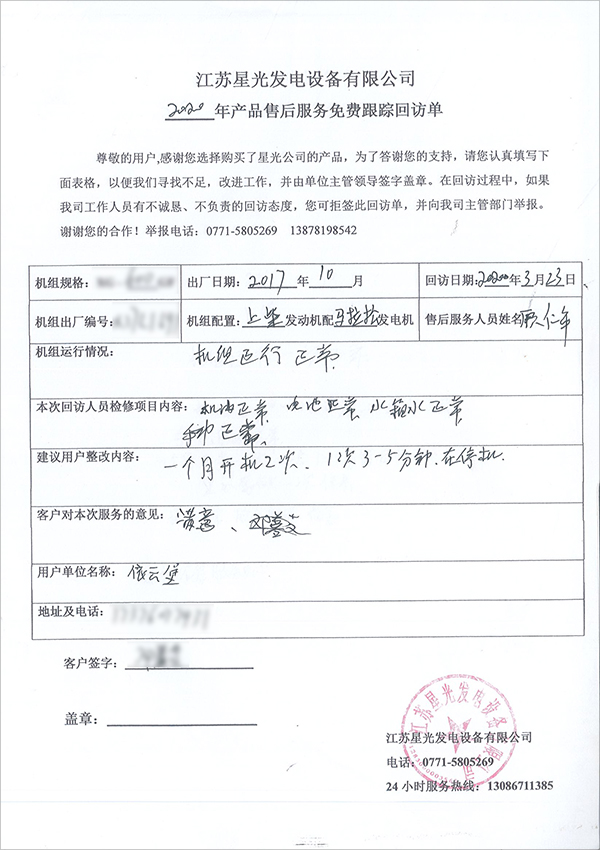 江苏星光发电设备有限公司
2020年产品售后服务免费跟踪回访单
尊敬的用户,感谢您选择购买了星光公司的产品，为了答谢您的支持，请您认真填写下
面表格，以便我们寻找不足，改进工作，并由单位主管领导签字盖章。在回访过程中，如果
我司工作人员有不诚恳、不负责的回访态度，您可拒签此回访单，并向我司主管部门举报。
谢谢您的合作！举报电话：0771-5805269 13878198542
机组规格： 出厂日期：2017年10月 回访日期：2020年3月23日
机组出厂编号： 机组配置：上柴发动机配马拉松发电机 售后服务人员姓名
机组运行情况： 机组运行正常
本次回访人员检修项目内容： 机油正常 电池正常 水箱水正常
手动正常、
建议用户整改内容： 一个月开机2次、1次3-5分钟.在停机.
客户对本次服务的意见： 满意、
用户单位名称： 依云堡
地址及电话：
客户签字：
盖章：
江苏星光发电设备有限公司
电话：0771-5805269
24小时服务热线：13086711385